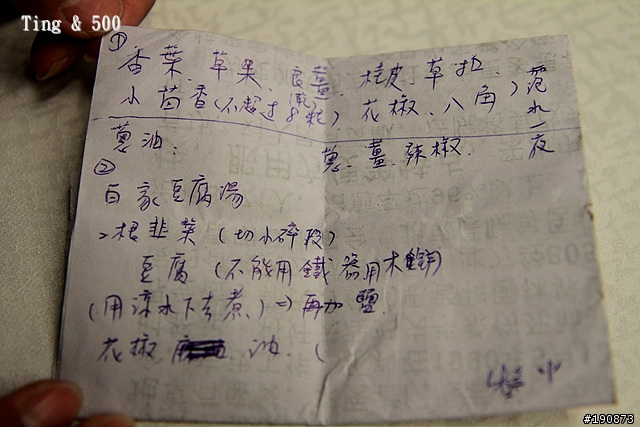 Ting & 500
①
香葉、草果、良薑、桂皮、草扣、
小茴香(不超过8粒)花椒、八角,泡水一夜
(乾)
蔥油、 蔥、薑、辣椒.
②
白家豆腐湯
2根韭菜(切小碎段)
豆腐(不能用鐵器用木鏟)
(用涼水下去煮、)⇒再加鹽
花椒 油、(
小
#190873